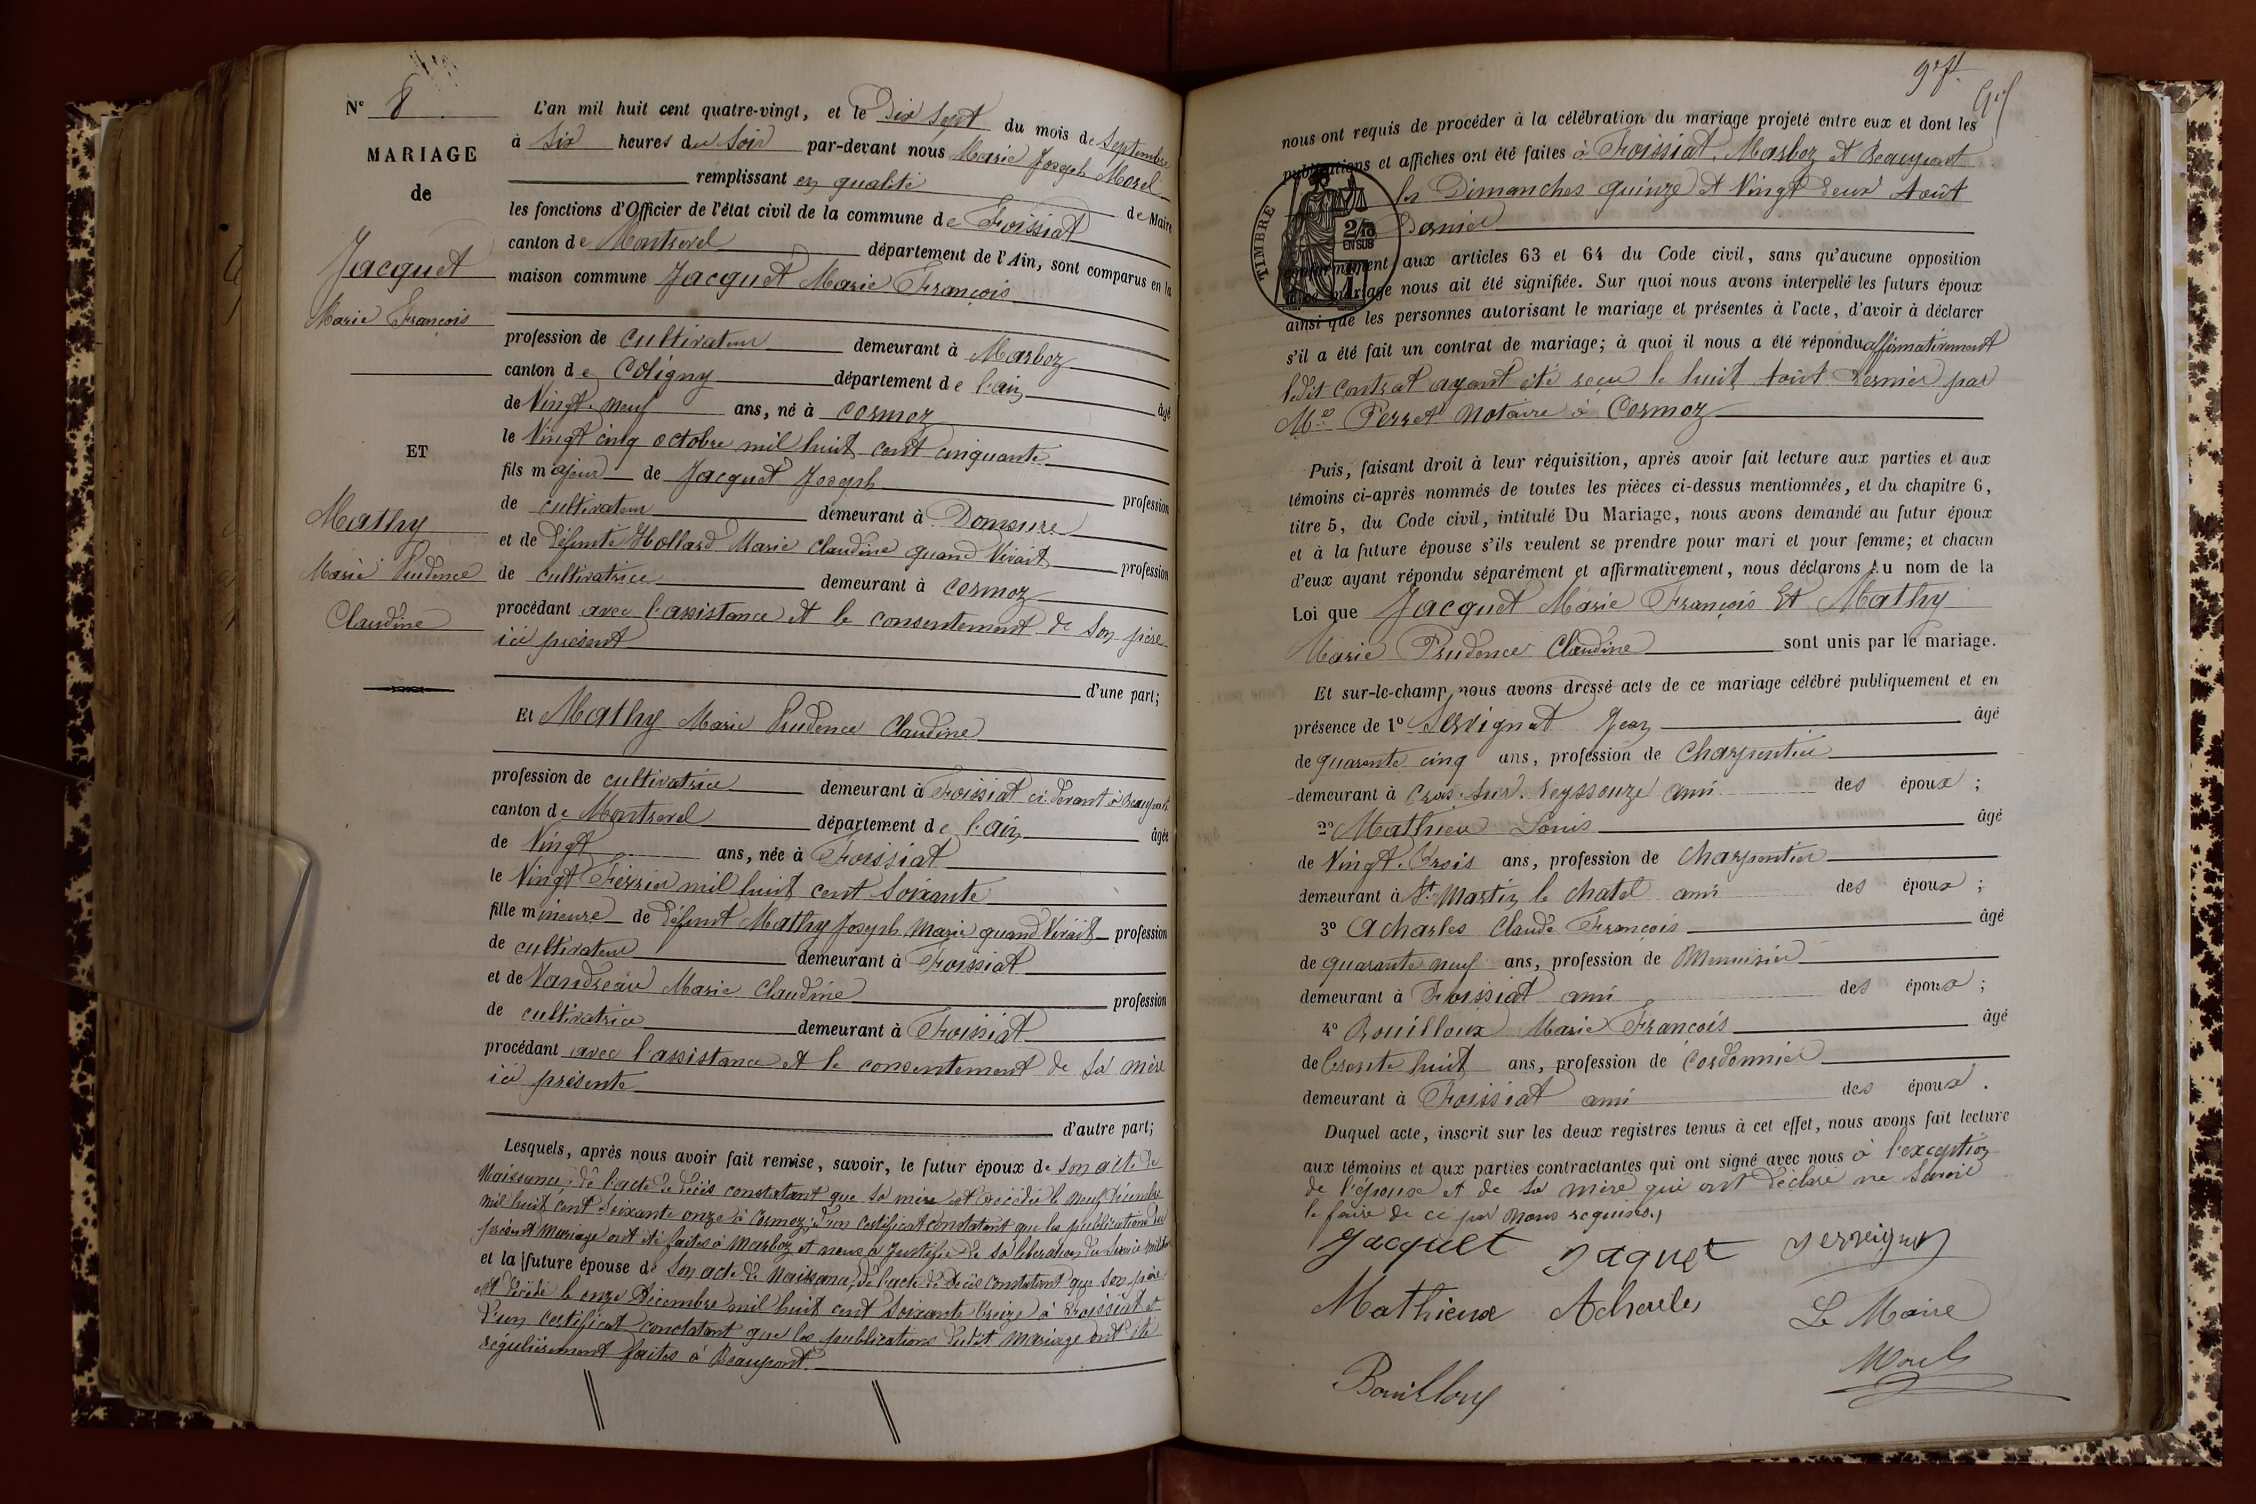 N° 8
MARIAGE
de
Jacquet
Marie François
ET
Mathy
Marie Prudence
Claudine
L'an mil huit cent quatre-vingt, et le Dix Sept du mois de Septembre
à Six heures du Soir par-devant nous Marie Joseph Morel
remplissant en qualité de Maire
les fonctions d'Officier de l'état civil de la commune de Foissiat
canton de Montrevel département de l'Ain, sont comparus en la
maison commune Jacquet Marie François
profession de cultivateur demeurant à Marboz
canton de Coligny département de l'ain âgé
de Vingt-neuf ans, né à Cormoz
le Vingt cinq octobre mil huit cent cinquante
fils majeur de Jacquet Joseph profession
de cultivateur demeurant à Domsure
et de Défunte Hollard Marie Claudine quand Vivait profession
de cultivatrice demeurant à Cormoz
procédant avec l'assistance et le consentement de Son père
ici présent
d'une part;
Et Mathy Marie Prudence Claudine
profession de cultivatrice demeurant à Foissiat ci-devant à Beaupont
canton de Montrevel département de l'ain âgée
de Vingt ans, née à Foissiat
le Vingt Février mil huit cent Soixante
fille mineure de Défunt Mathy Joseph Marie quand Vivait profession
de cultivateur demeurant à Foissiat
et de Vandreau Marie Claudine profession
de cultivatrice demeurant à Foissiat
procédant avec l'assistance et le consentement de Sa mère
ici présente
d'autre part;
Lesquels, après nous avoir fait remise, savoir, le futur époux de son acte de
Naissance, de l'acte de décès constatant que sa mère est Décédée le neuf Décembre
mil huit cent Soixante onze à Cormoz; d'un certificat constatant que les publications du
présent Mariage ont été faites à Marboz et nous a Justifié de sa libération du Service militaire
et la future épouse de Son acte de Naissance, de l'acte de Décès constatant que Son père
est Décédé le onze Décembre mil huit cent Soixante treize à Foissiat et
d'un certificat constatant que les publications dudit Mariage ont été
régulièrement faites à Beaupont.
97
nous ont requis de procéder à la célébration du mariage projeté entre eux et dont les
publications et affiches ont été faites à Foissiat, Marboz et Beaupont
les Dimanches quinze et Vingt Deux Août
Dernier
TIMBRE
EN SUS
conformément aux articles 63 et 64 du Code civil, sans qu'aucune opposition
mariage nous ait été signifiée. Sur quoi nous avons interpellé les futurs époux
ainsi que les personnes autorisant le mariage et présentes à l'acte, d'avoir à déclarer
s'il a été fait un contrat de mariage; à quoi il nous a été répondu affirmativement
ledit contrat ayant été reçu le huit Août Dernier par
Me Perret Notaire à Cormoz
Puis, faisant droit à leur réquisition, après avoir fait lecture aux parties et aux
témoins ci-après nommés de toutes les pièces ci-dessus mentionnées, et du chapitre 6,
titre 5, du Code civil, intitulé Du Mariage, nous avons demandé au futur époux
et à la future épouse s'ils veulent se prendre pour mari et pour femme; et chacun
d'eux ayant répondu séparément et affirmativement, nous déclarons Au nom de la
Loi que Jacquet Marie François Et Mathy
Marie Prudence Claudine sont unis par le mariage.
Et sur-le-champ, nous avons dressé acte de ce mariage célébré publiquement et en
présence de 1° Servignat Jean âgé
de quarante cinq ans, profession de Charpentier
demeurant à Cras-Sur-Reyssouze ami des époux ;
2° Mathieu Louis âgé
de Vingt-Trois ans, profession de Charpentier
demeurant à St Martin le Chatel ami des époux ;
3° Acharles Claude François âgé
de quarante neuf ans, profession de Menuisier
demeurant à Foissiat ami des époux ;
4° Bouilloux Marie François âgé
de Trente huit ans, profession de Cordonnier
demeurant à Foissiat ami des époux.
Duquel acte, inscrit sur les deux registres tenus à cet effet, nous avons fait lecture
aux témoins et aux parties contractantes qui ont signé avec nous à l'exception
de l'épouse et de Sa mère qui ont déclaré ne Savoir
le faire de ce par Nous requises.
Jacquet Jaquet Servignat
Mathieux Acharles Le Maire
Bouilloux Morel